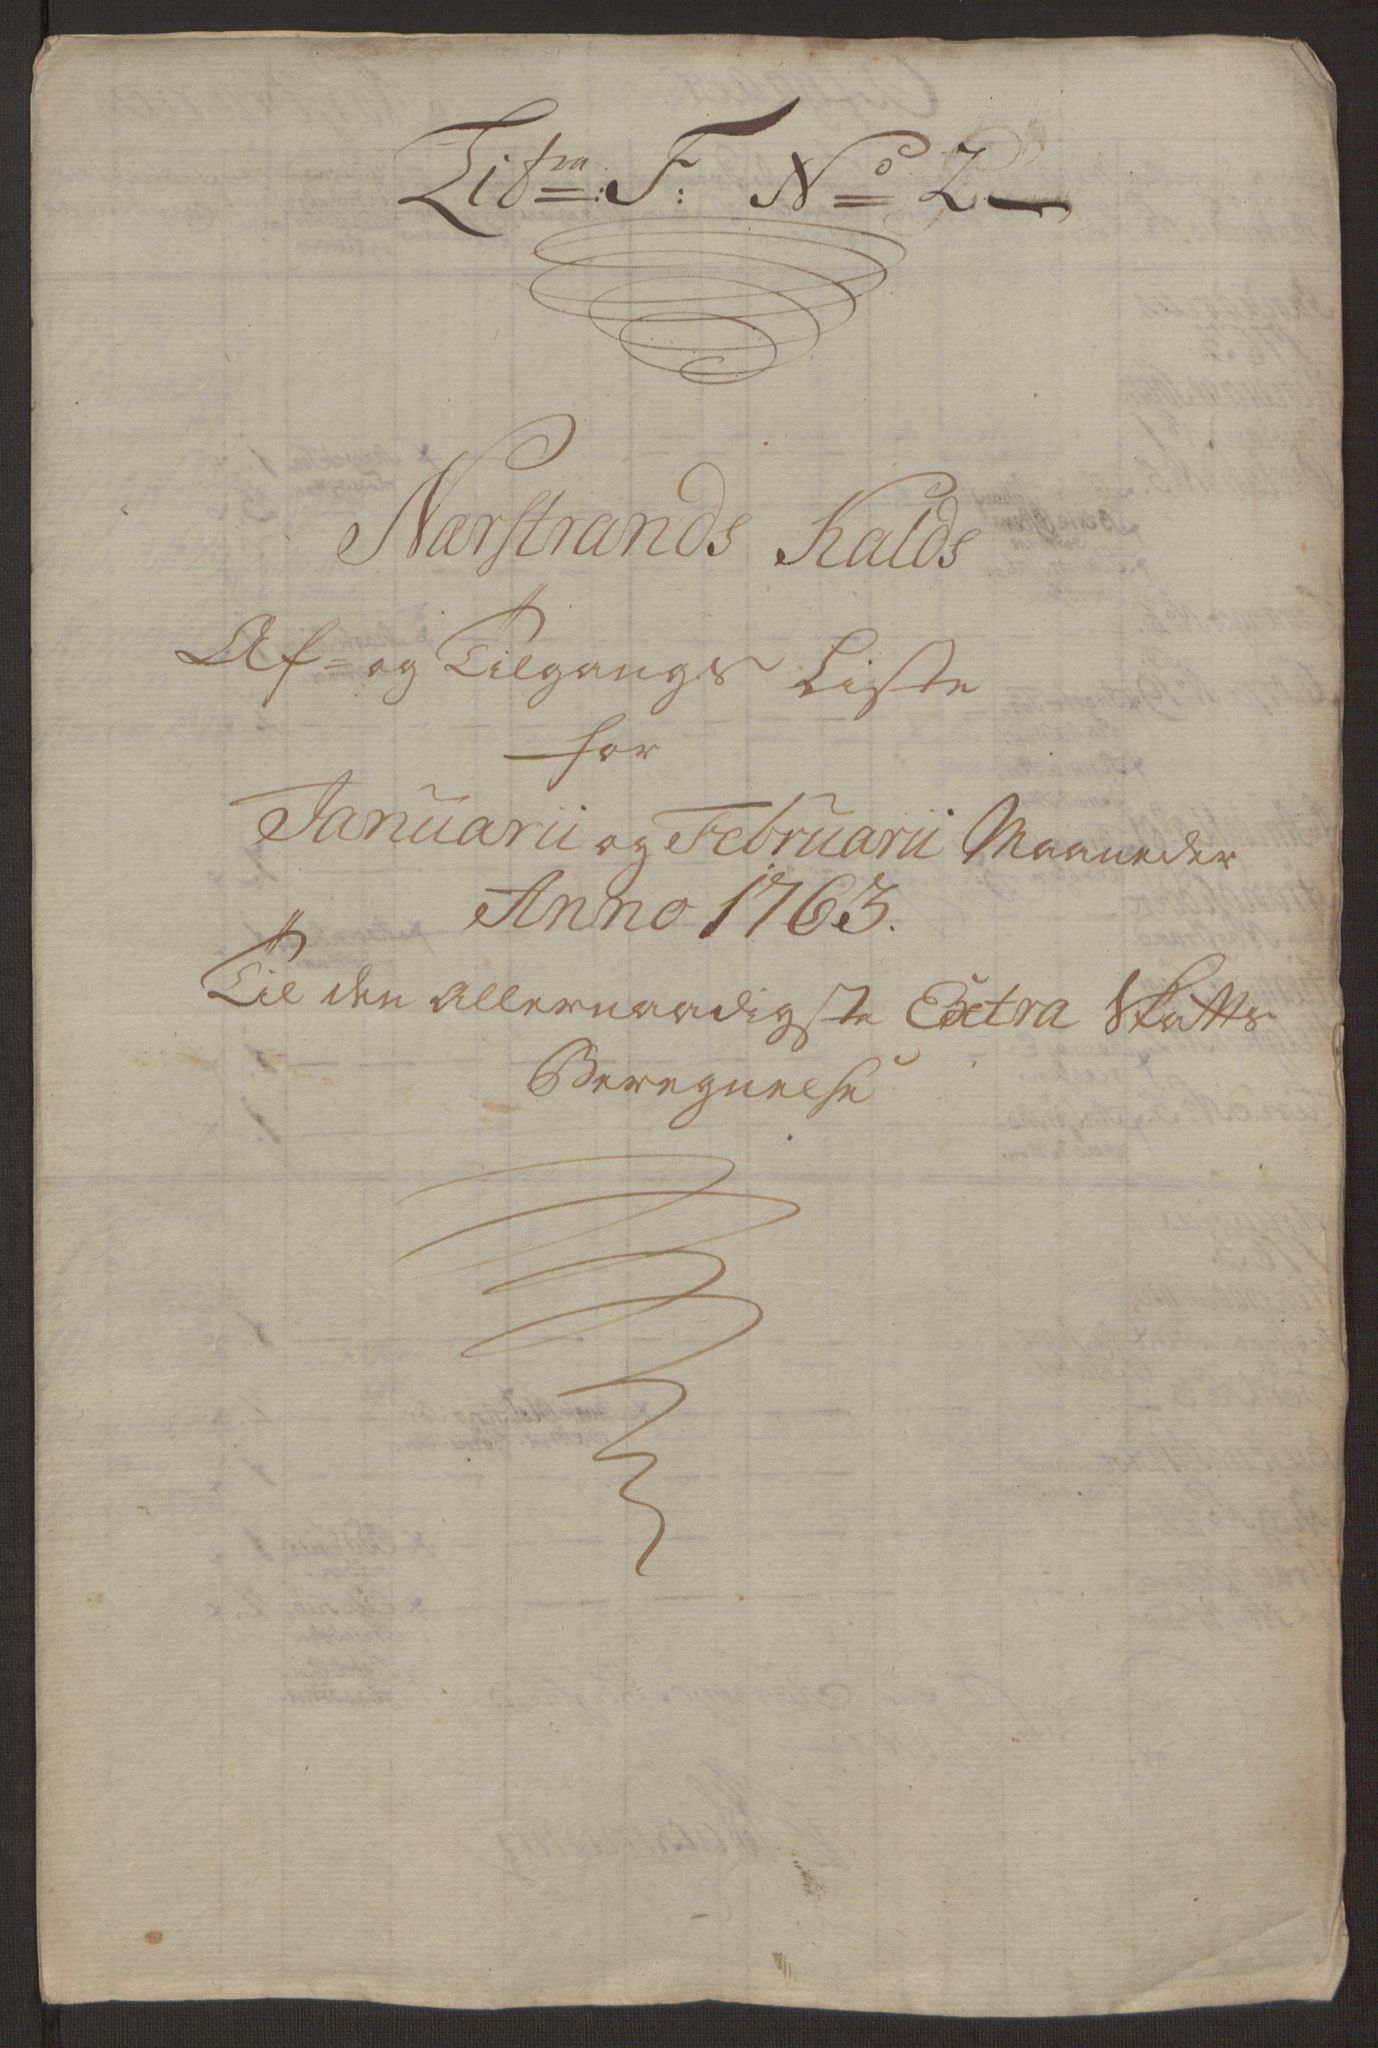 Litra: F: No 2
Nærstrands Kalds
Af= og Tilgangs Liste
for
Januarii og Februarii Maaneder
Anno 1763.
Til den Allernaadigste Extra Skatts
Beregnelse